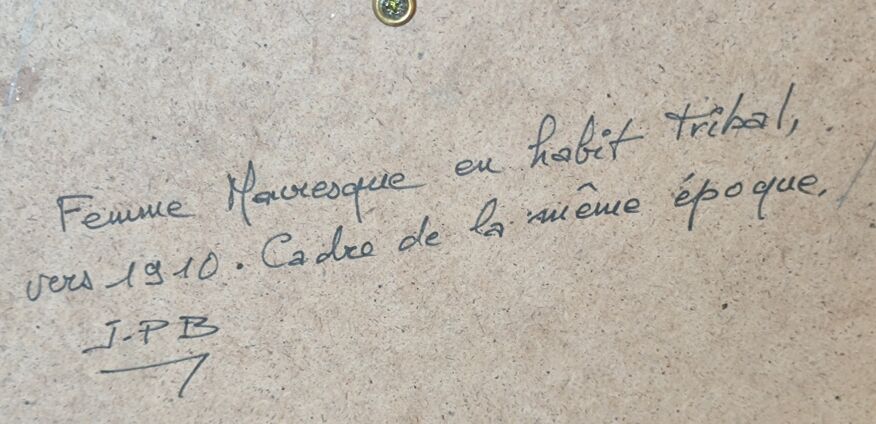 Femme Mauresque en habit tribal,
vers 1910. Cadre de la même époque.
J-PB